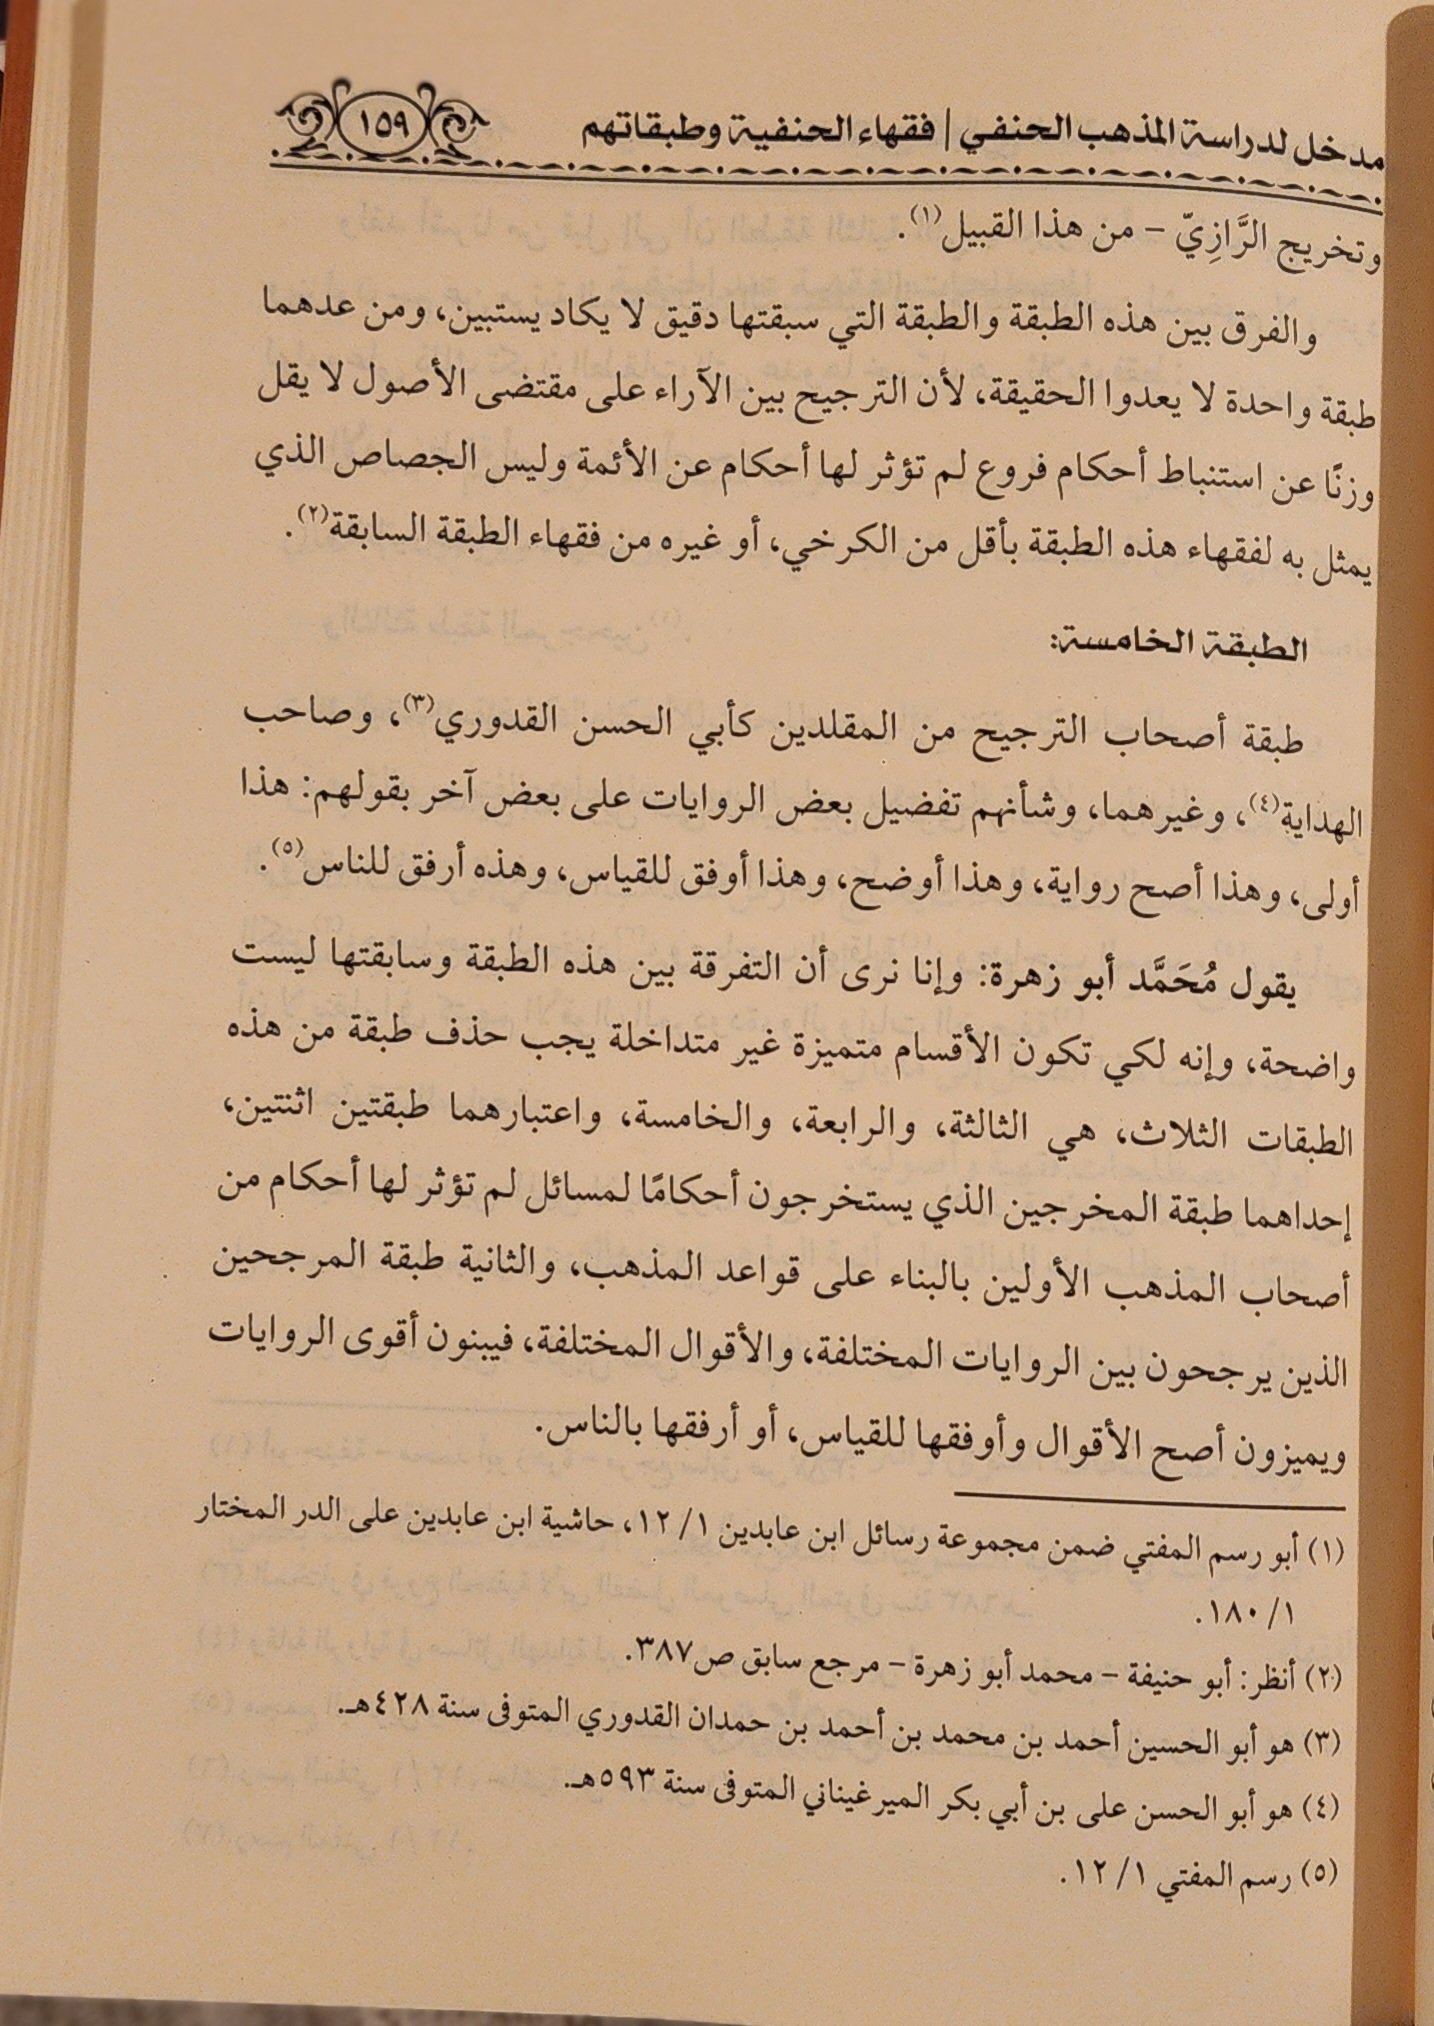 مدخل لدراسة المذهب الحنفي | فقهاء الحنفية وطبقاتهم ١٥٩
وتخريج الرَّازِيّ – من هذا القبيل(١).
والفرق بين هذه الطبقة والطبقة التي سبقتها دقيق لا يكاد يستبين، ومن عدهما
طبقة واحدة لا يعدوا الحقيقة، لأن الترجيح بين الآراء على مقتضى الأصول لا يقل
وزنًا عن استنباط أحكام فروع لم تؤثر لها أحكام عن الأئمة وليس الجصاص الذي
يمثل به لفقهاء هذه الطبقة بأقل من الكرخي، أو غيره من فقهاء الطبقة السابقة(٢).
الطبقة الخامسة:
طبقة أصحاب الترجيح من المقلدين كأبي الحسن القدوري(٣)، وصاحب
الهداية(٤)، وغيرهما، وشأنهم تفضيل بعض الروايات على بعض آخر بقولهم: هذا
أولى، وهذا أصح رواية، وهذا أوضح، وهذا أوفق للقياس، وهذه أرفق للناس(٥).
يقول مُحَمَّد أبو زهرة: وإنا نرى أن التفرقة بين هذه الطبقة وسابقتها ليست
واضحة، وإنه لكي تكون الأقسام متميزة غير متداخلة يجب حذف طبقة من هذه
الطبقات الثلاث، هي الثالثة، والرابعة، والخامسة، واعتبارهما طبقتين اثنتين،
إحداهما طبقة المخرجين الذي يستخرجون أحكامًا لمسائل لم تؤثر لها أحكام من
أصحاب المذهب الأولين بالبناء على قواعد المذهب، والثانية طبقة المرجحين
الذين يرجحون بين الروايات المختلفة، والأقوال المختلفة، فيبنون أقوى الروايات
ويميزون أصح الأقوال وأوفقها للقياس، أو أرفقها بالناس.
(١) أبو رسم المفتي ضمن مجموعة رسائل ابن عابدين ١/ ١٢، حاشية ابن عابدين على الدر المختار
١/ ١٨٠.
(٢) أنظر: أبو حنيفة – محمد أبو زهرة – مرجع سابق ص٣٨٧.
(٣) هو أبو الحسين أحمد بن محمد بن أحمد بن حمدان القدوري المتوفى سنة ٤٢٨هـ.
(٤) هو أبو الحسن على بن أبي بكر الميرغيناني المتوفى سنة ٥٩٣هـ.
(٥) رسم المفتي ١/ ١٢.